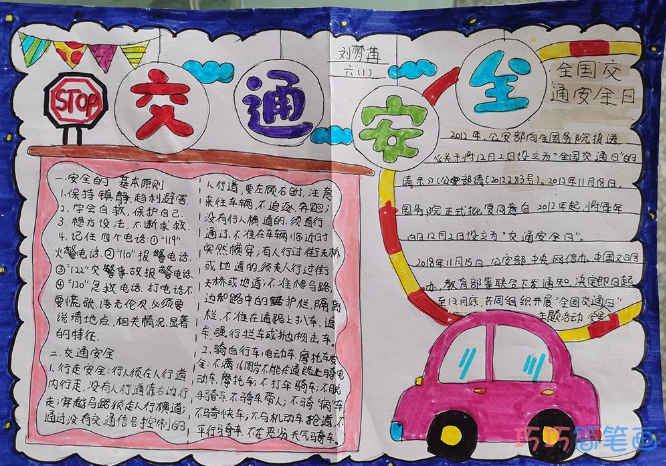 刘梦莲
六(1)
STOP
交通安全
全国交
通安全日
一.安全的基本原则
1.保持镇静,趋利避害
2.学会自救,保护自己.
3.想方设法,不断求救.
4.记住四个电话:①"119"
火警电话.②"110"报警电话.
③"122"交警事故报警电话
④"120"急救电话.打电话不
要慌
要说清地点、相关情况、显著
的特征.
二.交通安全
1.行走安全:行人须在人行道
内行走,没有人行道靠右边行
走;穿越马路须走人行横道;
通过没有交通信号控制的
人行道,要左顾右盼,注意
来往车辆,不追逐,奔跑;
没有行人横道的,须直行
通过,不准在车辆临近时
突然横穿;有人行过街天桥
或地道的,须走人行过街
天桥或地道;不准爬马路
边和路中的护栏,隔离
栏,不准在道路上扒车、追
车、强行拦车或抛物击车.
2.骑自行车,电动车,摩托车安
全:不满16周岁不能在道路上骑电
动车,摩托车;不打伞骑车;不脱
手骑车,不骑车带人;不骑"病"车
不骑快车;不与机动车抢道,不
平行骑车,不在恶劣天气骑车.
2012年,公安部向国务院报送
《关于将12月2日设立为"全国交通日"的
请示》(公安部请(2012)83号)。2012年11月18日,
国务院正式批复同意自2012年起,将每年
的12月2日设立为"交通安全日"。
2018年11月15日,公安部、中央网信办、中国文明
办、教育部等联合下发通知,决定即日起
至12月底,共同组织开展"全国交通日"
主题活动
巧巧简笔画